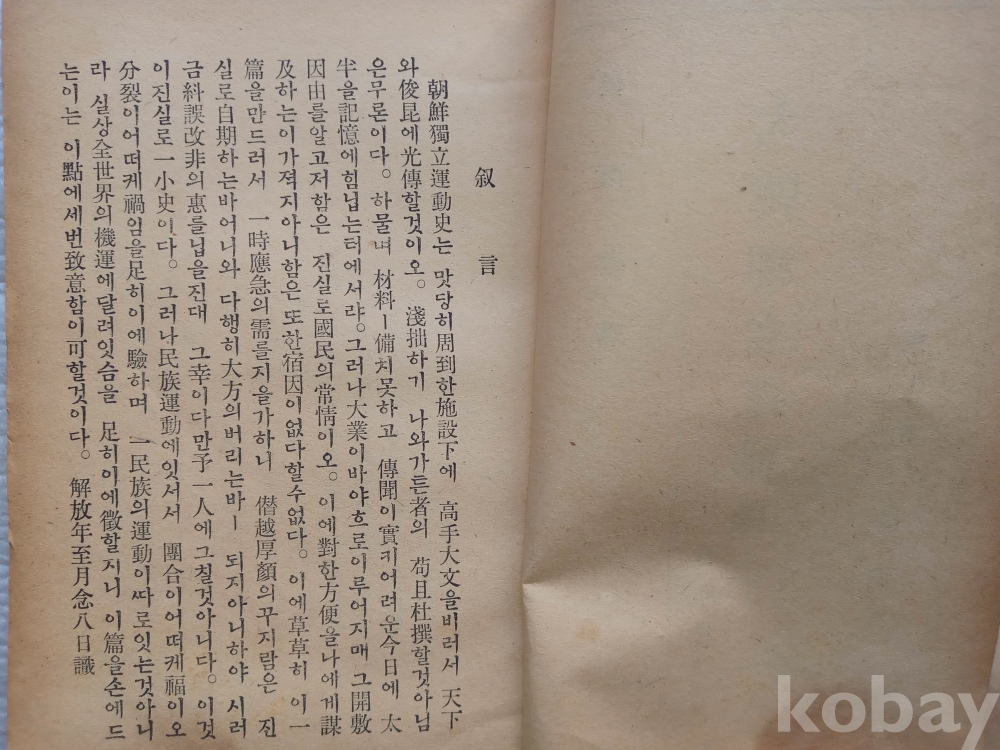 叙言
朝鮮獨立運動史는 맛당히周到한施設下에 高手大文을비러서 天下
와俊昆에光傳할것이오。淺拙하기 나와가튼者의 苟且杜撰할것아님
은무론이다。하물며 材料ㅣ備치못하고 傳聞이實키어려운今日에 太
半을記憶에힘닙는터에서랴。그러나大業이바야흐로이루어지매 그開敷
因由를알고저함은 진실로國民의常情이오。이에對한方便을나에게謀
及하는이가젹지아니함은 또한宿因이없다할수없다。이에草草히 이一
篇을만드러서 一時應急의需를지을가하니 僭越厚顔의꾸지람은 진
실로自期하는바어니와 다행히大方의버리는바ㅣ 되지아니하야 시러
금糾誤改非의惠를닙을진대 그幸이다만予一人에그칠것아니다。이것
이진실로一小史이다。그러나民族運動에잇서서 團合이어떠케福이오
分裂이어떠케禍임을足히이에驗하며 一民族의運動이따로잇는것아니
라 실상全世界의機運에달려잇슴을 足히이에徵할지니 이篇을손에드
는이는 이點에세번致意함이可할것이다。 解放年至月念八日識
kobay